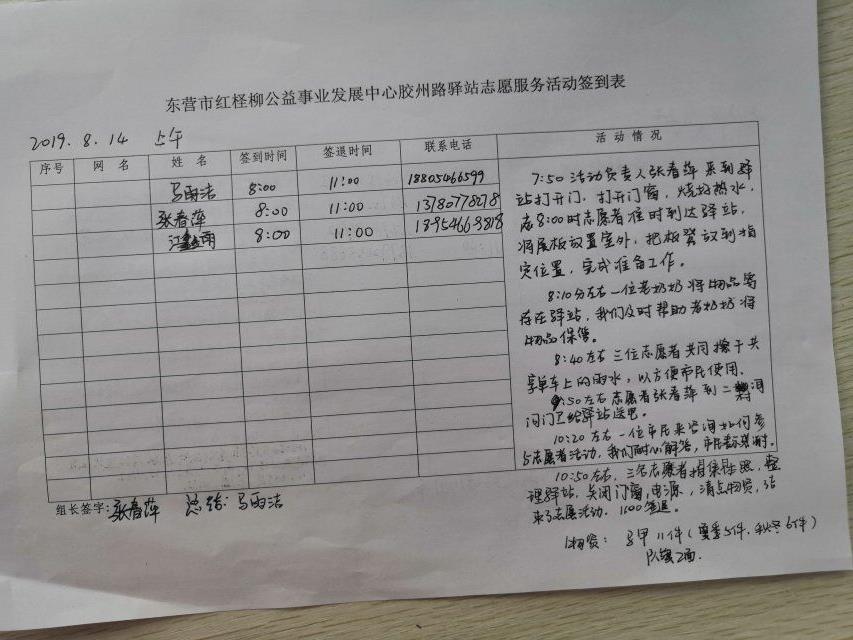 东营市红柽柳公益事业发展中心胶州路驿站志愿服务活动签到表
2019.8.14 上午
序号 网名 姓名 签到时间 签退时间 联系电话 活动情况
马雨洁 8:00 11:00 18805466599
张春萍 8:00 11:00 13780778278
8:00 11:00
7:50活动负责人张春萍来到驿
站打开门,打开门窗,烧好热水,
志8:00时志愿者准时到达驿站,
将展板放置室外,把板凳放到指
定位置,完成准备工作。
8:10分左右一位老奶奶将物品寄
存在驿站,我们及时帮助老奶奶将
物品保管。
8:40左右三位志愿者共同擦干共
享单车上的雨水,以方便市民使用。
9:50左右志愿者张春萍到二
驿站送
10:20左右一位市民来咨询如何参
与志愿者活动,我们耐心解答,市民表示
10:50左右,三名志愿者 整
理驿站,关闭门窗,电源,清点物资,结
束了志愿活动。1100签退。
组长签字:张春萍 总结:马雨洁
物资: 马甲11件(夏季5件,秋冬6件)
队旗2面.